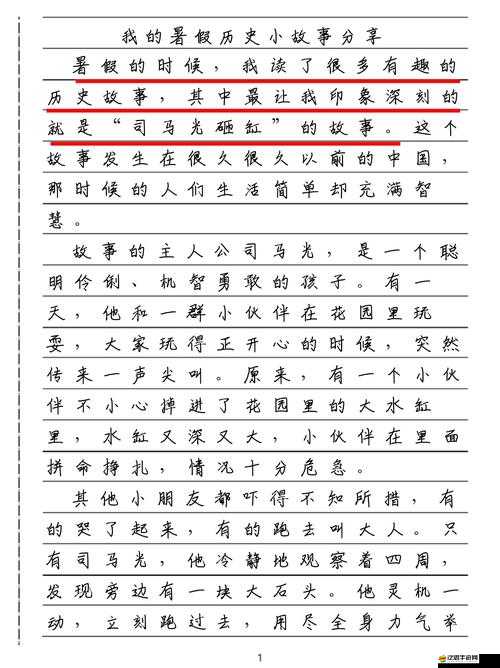 我的暑假历史小故事分享
暑假的时候，我读了很多有趣的
历史故事，其中最让我印象深刻的
就是“司马光砸缸”的故事。这个
故事发生在很久很久以前的中国，
那时候的人们生活简单却充满智
慧。
故事的主人公司马光，是一个聪
明伶俐、机智勇敢的孩子。有一
天，他和一群小伙伴在花园里玩
耍，大家玩得正开心的时候，突然
传来一声尖叫。原来，有一个小伙
伴不小心掉进了花园里的大水缸
里，水缸又深又大，小伙伴在里面
拼命挣扎，情况十分危急。
其他小朋友都吓得不知所措，有
的哭了起来，有的跑去叫大人。只
有司马光，他冷静地观察着四周，
发现旁边有一块大石头。他灵机一
动，立刻跑过去，用尽全身力气举
1